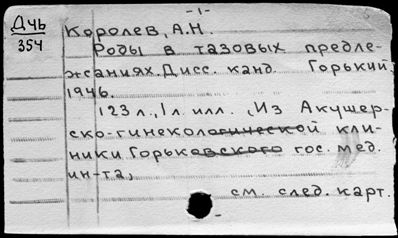 -1-
Дчь
354
Королев, А.Н.
Роды в тазовых предле-
жаниях. Дисс. канд. Горький,
1946.
123 л., 1 л. илл. (Из Акушер-
ско-гинекологической кли-
ники Горьковского гос. мед.
ин-та,
см. след. карт.